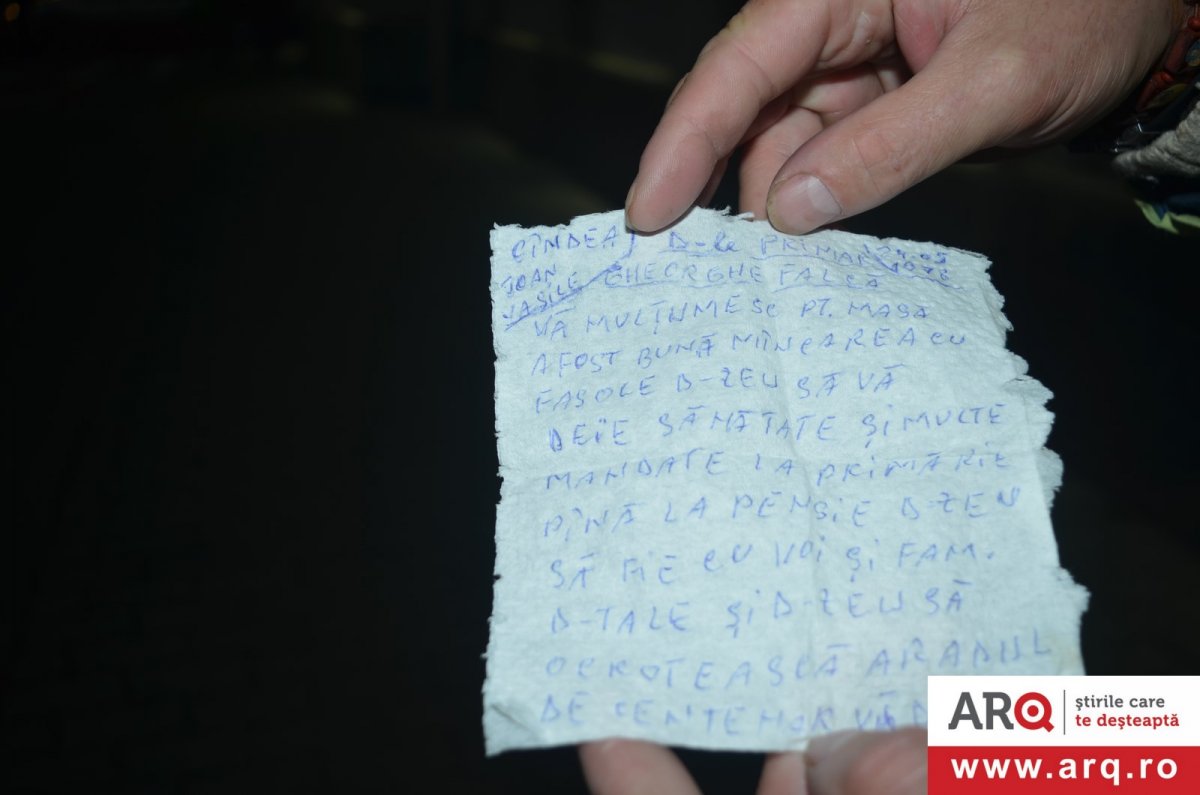 CÎNDEA
IOAN
VASILE
D-le PRIMAR
GHEORGHE FALCĂ
VĂ MULȚUMESC PT. MASA
A FOST BUNĂ MÎNCAREA CU
FASOLE D-ZEU SĂ VĂ
DEIE SĂNĂTATE ȘI MULTE
MANDATE LA PRIMĂRIE
PÎNĂ LA PENSIE D-ZEU
SĂ FIE CU VOI ȘI FAM.
D-TALE ȘI D-ZEU SĂ
OCROTEASCĂ ARADUL
DE CENTEMOR VĂ
ARQ știrile care
te deșteaptă
www.arq.ro